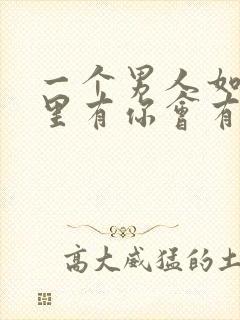 一个男人如
里有你会有
高大威猛的土